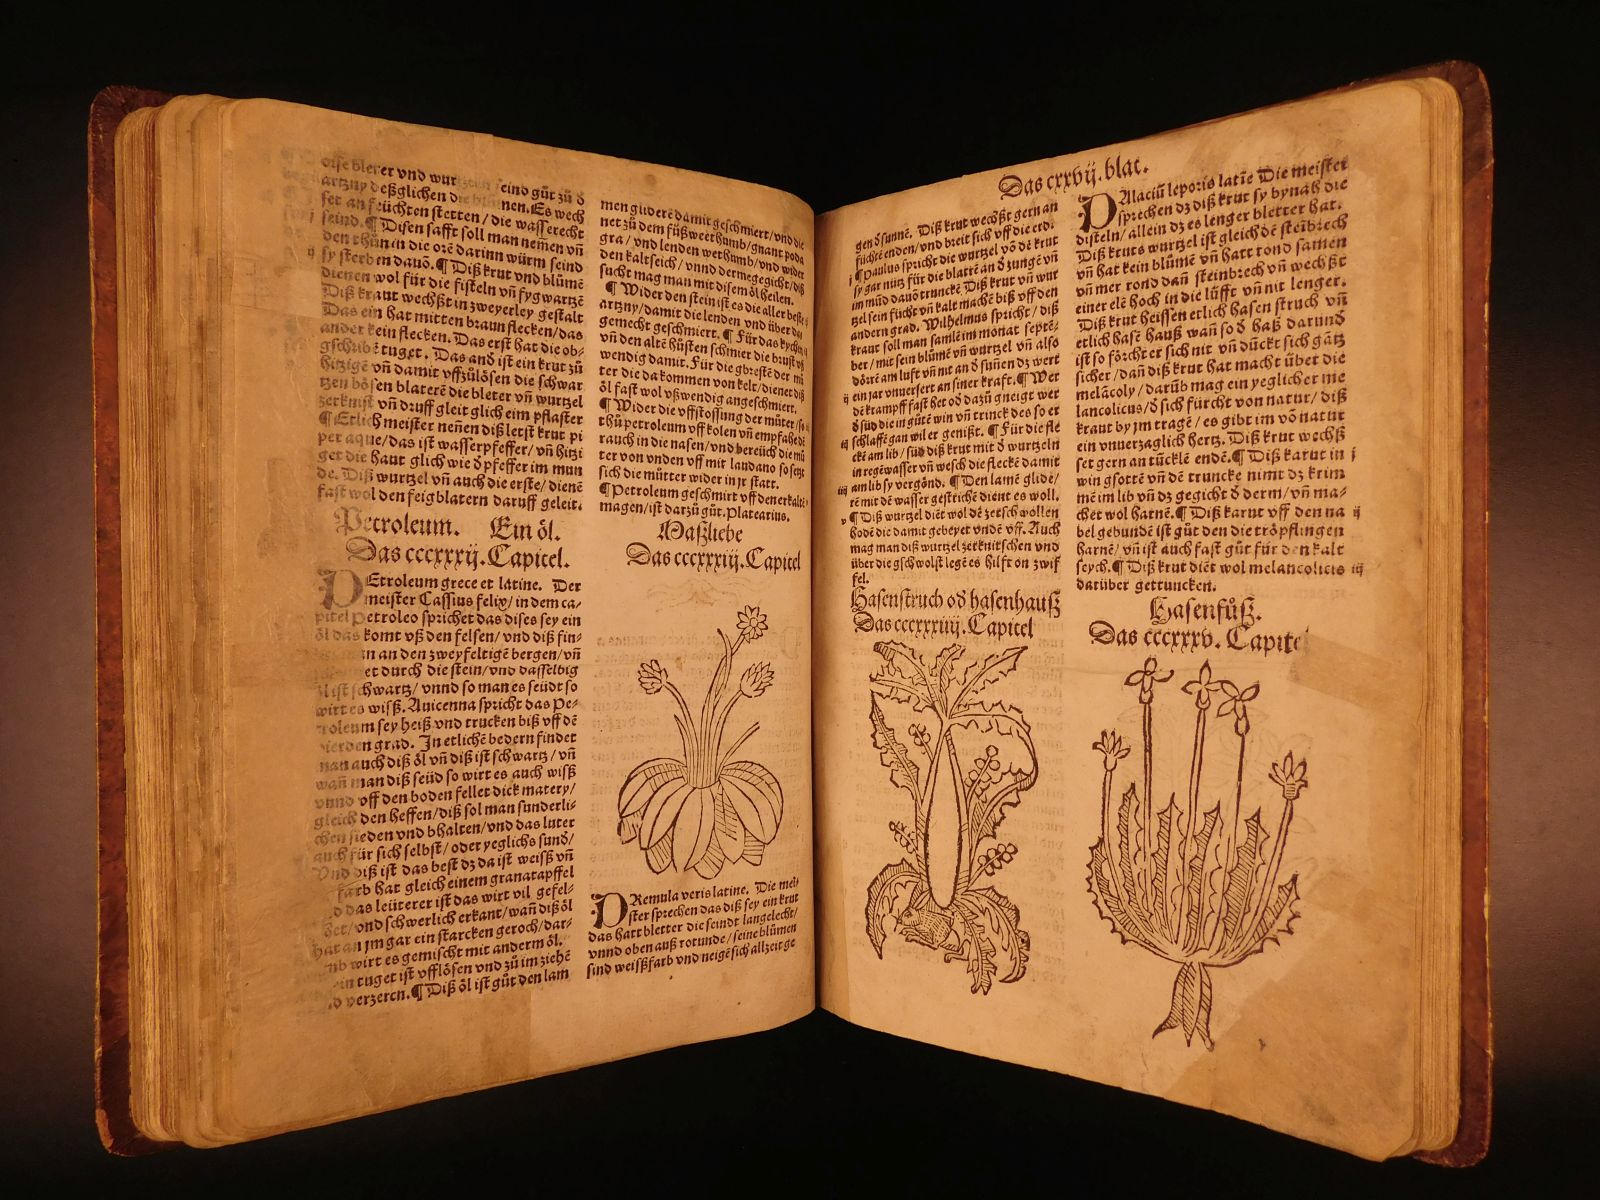 bleter vnd wur seind gůt zů d
artzny deßglichen die nen. Es wech
set an früchten stetten / die wasserecht
seind. ¶ Disen safft soll man nemen vñ
den thůn in die orē darinn würm seind
sy sterben dauō. ¶ Diß krut vnd blůmē
dienen wol für die fisteln vñ fygwartzē
Diß kraut wechßt in zweyerley gestalt
Das ein hat mitten braun flecken / das
ander kein flecken. Das erst hat die ob-
gschribē tuget. Das and ist ein krut zů
hitzigē vñ damit vffzůlösen die schwar
tzen bösen blaterē die bleter vñ wurtzel
zerknist vñ druff gleit glich eim pflaster
¶ Etlich meister neñen diß letst krut pi
per aque / das ist wasserpfeffer / vñ hitzi
get die haut glich wie d pfeffer im mun
de. Diß wurtzel vñ auch die erste / dienē
fast wol den feigblatern daruff geleit.
Petroleum. Ein öl.
Das cccxxxij. Capitel.
PEtroleum grece et latine. Der
meister Cassius felix / in dem ca-
pitel petroleo sprichet das dises sey ein
öl das komt vß den felsen / vnd diß fin-
an den zweyfeltigē bergen / vñ
et durch die stein / vnd dasselbig
öl ist schwartz / vnnd so man es seüdt so
wirt es wisß. Auicenna spricht das Pe-
troleum sey heiß vnd trucken biß vff dē
vierden grad. In etlichē bedern findet
man auch diß öl vñ diß ist schwartz / vñ
wañ man diß seüd so wirt es auch wisß
vnnd vff den boden fellet dick matery /
gleich den heffen / diß sol man sunderli-
chen sieden vnd bhalten / vnd das luter
auch für sich selbst / oder yeglichs sund /
Vnd diß ist das best dz da ist weisß vñ
farb hat gleich einem granatapffel
das leüterer ist das wirt vil gefel-
/ vnd schwerlich erkant / wañ diß öl
hat an jm gar ein starcken geroch / dar-
wirt es gemischt mit anderm öl.
tuget ist vfflösen vnd zů im ziehē
verzeren. ¶ Diß öl ist gůt den lam
men glidere damit geschmiert / vnd die
net zů dem fůßweethumb / gnant poda
gra / vnd lenden wethumb / vnd wider
den kaltseich / vnnd dermegegicht / diß
sucht mag man mit disem öl heilen.
¶ Wider den stein ist es die aller beste
artzny / damit die lenden vnd über da
gemecht geschmiert. ¶ Für das kychē
vñ den altē hůsten schmier die brust vß
wendig damit. Für die gbreste der mů
ter die da kommen von kelt / dienet diß
öl fast wol vßwendig angeschmiert.
¶ Wider die vffstossung der můter / so
thů petroleum vff kolen vñ empfahe dē
rauch in die nasen / vnd bereüch die mů
ter von vnden vff mit laudano so setzt
sich die můtter wider in jr statt.
¶ Petroleum geschmirt vff den erkaltē
magen / ist darzů gůt. Platearius.
Maßliebe
Das cccxxxiij. Capitel
PRemula veris latine. Die mei-
ster sprechen das diß sey ein krut
das hatt bletter die seindt langelecht /
vnnd oben auß rotunde / seine blůmen
sind weisßfarb vnd neigē sich allzeit ge
Das cxxvij. blat.
gen d sunnē. Diß krut wechßt gern an
füchtē enden / vnd breit sich vff die erd.
j ¶ Paulus spricht die wurtzel vō dē krut
sy gar nütz für die blatrē an d zungē vñ
im mūd dauō trunckē. Diß krut vñ wur
tzel sein fücht vñ kalt machē biß vff den
andern grad. Wilhelmus spricht / diß
kraut soll man samlē im monat septē-
ber / mit sein blůmē vñ wurtzel vñ also
dörrē am lufft vñ nit an d suñen dz wert
ein jar vnuersert an siner kraft. ¶ Wer
ij dē krampff fast het od dazů gneigt wer
d süd die in gůtē win vñ trinck des so er
schlaffē gan wil er genißt. ¶ Für die fle
iij ckē am lib / süd diß krut mit d wurtzeln
in regēwasser vñ wesch die fleckē damit
am lib sy vergōnd. ¶ Den lamē glidē /
iiij rē mit dē wasser gestrichē dient es woll.
v ¶ Diß wurtzel diēt wol dē zerschwollen
hodē die damit gebeyet vndē vff. Auch
mag man diß wurtzel zerknitschen vnd
über die gschwolst legē es hilft on zwif
fel.
Hasenstruch od hasenhauß
Das cccxxxiiij. Capitel
PAlaciū leporis latīe Die meister
sprechen dz diß krut sy bynah die
disteln / allein dz es lenger bletter hat.
Diß kruts wurtzel ist gleich dē steībrech
vñ hat kein blůmē vñ hatt rond samen
vñ mer rond dañ steinbrech vñ wechßt
einer elē hoch in die lüfft vñ nit lenger.
Diß krut heissen etlich hasen struch vñ
etlich hasē hauß wañ so d haß darund
ist so förcht er sich nit vñ dückt sich gātz
sicher / dañ diß krut hat macht über die
melācoly / darūb mag ein yeglicher me
lancolicus / d sich fürcht von natur / diß
kraut by jm tragē / es gibt im vō natur
ein vnuerzaglich hertz. Diß krut wechß
set gern an tücklē endē. ¶ Diß karut in j
win gsottē vñ dē truncke nimt dz krim
mē im lib vñ dz gegicht d derm / vñ ma-
chet wol harnē. ¶ Diß karut vff den na ij
bel gebundē ist gůt den die tröpflingen
harnē / vñ ist auch fast gůt für den kalt
seych. ¶ Diß krut diēt wol melancolicis iij
darüber gettuncken.
Hasenfůß.
Das cccxxxv. Capitel